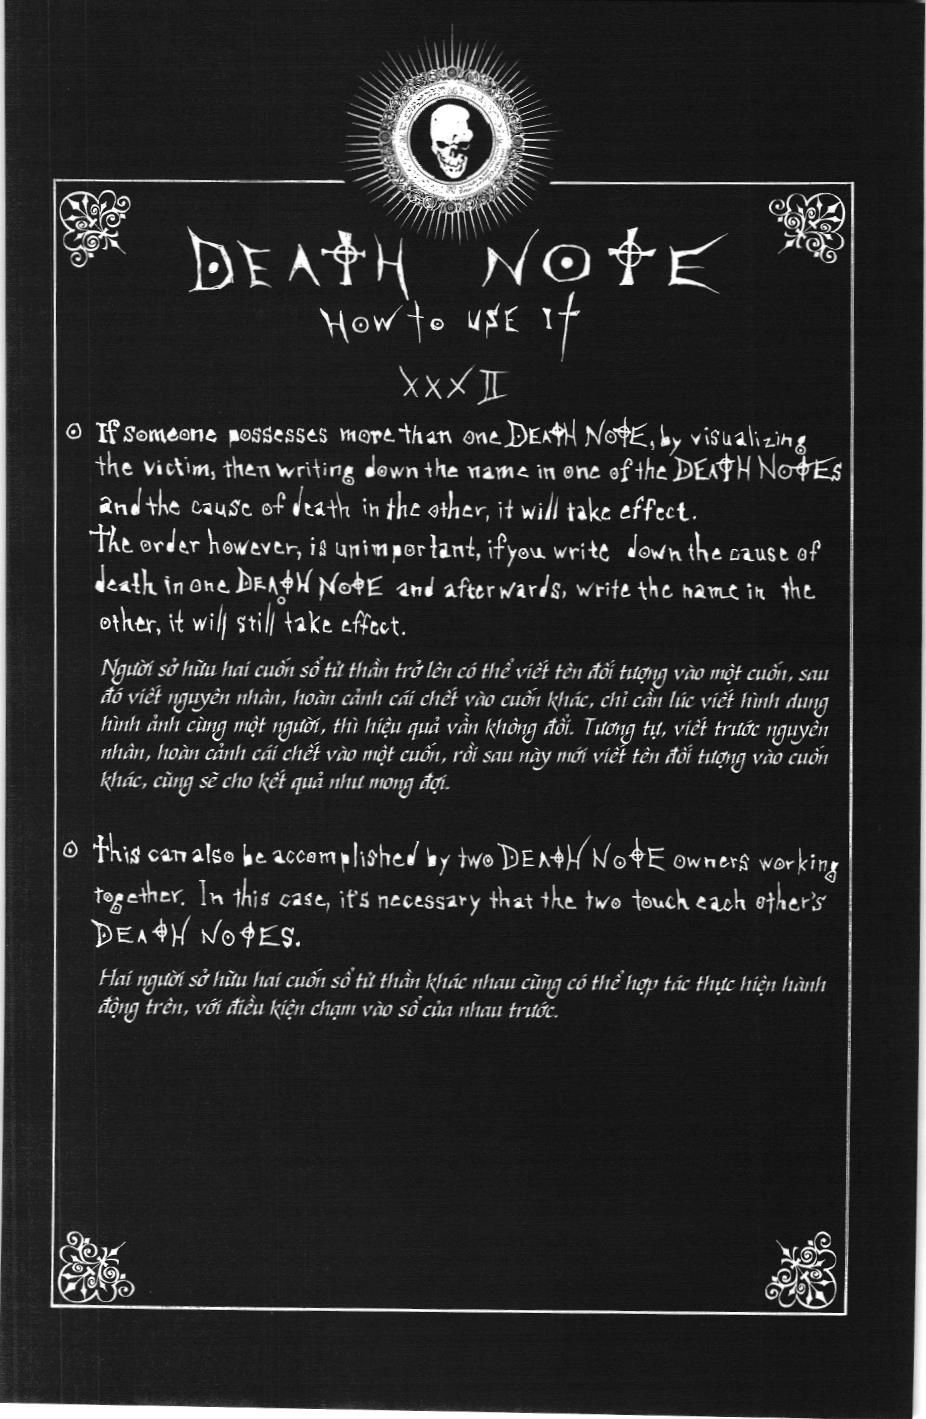 DEATH NOTE
HOW to USE It
XXXII
If someone possesses more than one DEATH NOTE, by visualizing
the victim, then writing down the name in one of the DEATH NOTES
and the cause of death in the other, it will take effect.
The order however, is unimportant, if you write down the cause of
death in one DEATH NOTE and afterwards, write the name in the
other, it will still take effect.
Người sở hữu hai cuốn sổ tử thần trở lên có thể viết tên đối tượng vào một cuốn, sau
đó viết nguyên nhân, hoàn cảnh cái chết vào cuốn khác, chỉ cần lúc viết hình dung
hình ảnh cùng một người, thì hiệu quả vẫn không đổi. Tương tự, viết trước nguyên
nhân, hoàn cảnh cái chết vào một cuốn, rồi sau này mới viết tên đối tượng vào cuốn
khác, cũng sẽ cho kết quả như mong đợi.
This can also be accomplished by two DEATH NOTE owners working
together. In this case, it's necessary that the two touch each other's
DEATH NOTES.
Hai người sở hữu hai cuốn sổ tử thần khác nhau cũng có thể hợp tác thực hiện hành
động trên, với điều kiện chạm vào sổ của nhau trước.